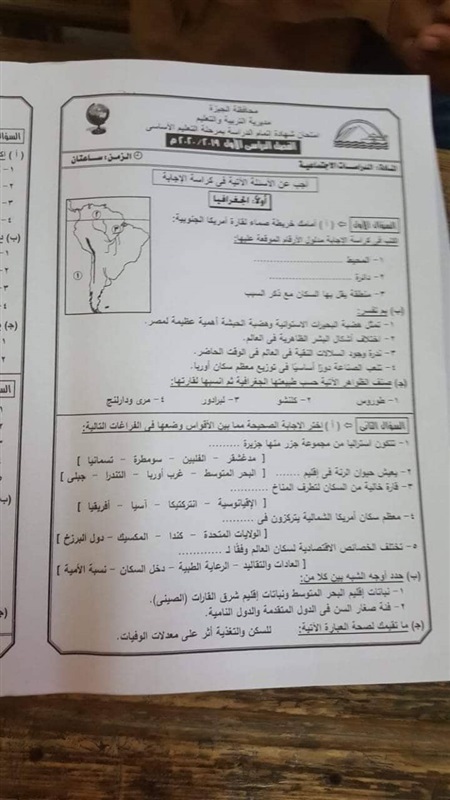 محافظة الجيزة
مديرية التربية والتعليم
امتحان شهادة إتمام الدراسة بمرحلة التعليم الأساسى
الفصل الدراسى الأول ٢٠١٩ / ٢٠٢٠ م
المادة: الدراسات الاجتماعية
الزمن: ساعتان
أجب عن الأسئلة الآتية فى كراسة الإجابة
أولاً: الجغرافيا
السؤال الأول ( أ ) أمامك خريطة صماء لقارة أمريكا الجنوبية:
اكتب فى كراسة الإجابة مدلول الأرقام الموقعة عليها:
١- المحيط ..........
٢- دائرة ..........
٣- منطقة يقل بها السكان مع ذكر السبب
(ب) بم تفسر:
١- تمثل هضبة البحيرات الاستوائية وهضبة الحبشة أهمية عظيمة لمصر.
٢- اختلاف أشكال البشر الظاهرية فى العالم.
٣- ندرة وجود السلالات النقية فى العالم فى الوقت الحاضر.
٤- تلعب الصناعة دورًا أساسيًا فى توزيع معظم سكان أوربا.
(جـ) صنف الظواهر الآتية حسب طبيعتها الجغرافية ثم انسبها لقارتها:
١- طوروس ٢- كلنتشو ٣- لبرادور ٤- مرى ودارلنج
السؤال الثانى ( أ ) اختر الإجابة الصحيحة مما بين الأقواس وضعها فى الفراغات التالية:
١- تتكون أستراليا من مجموعة جزر منها جزيرة ..........
[ مدغشقر – الفلبين – سومطرة – تسمانيا ]
٢- يعيش حيوان الرنة فى إقليم ..........
[ البحر المتوسط – غرب أوربا – التندرا – جبلى ]
٣- قارة خالية من السكان لتطرف المناخ ..........
[ الإقيانوسية – انتركتيكا – آسيا – أفريقيا ]
٤- معظم سكان أمريكا الشمالية يتركزون فى ..........
[ الولايات المتحدة – كندا – المكسيك – دول البرزخ ]
٥- تختلف الخصائص الاقتصادية لسكان العالم وفقًا لـ ..........
[ العادات والتقاليد – الرعاية الطبية – دخل السكان – نسبة الأمية ]
(ب) حدد أوجه الشبه بين كلا من:
١- نباتات إقليم البحر المتوسط ونباتات إقليم شرق القارات (الصينى).
٢- فئة صغار السن فى الدول المتقدمة والدول النامية.
(جـ) ما تقيمك لصحة العبارة الآتية: للسكن والتغذية أثر على معدلات الوفيات.